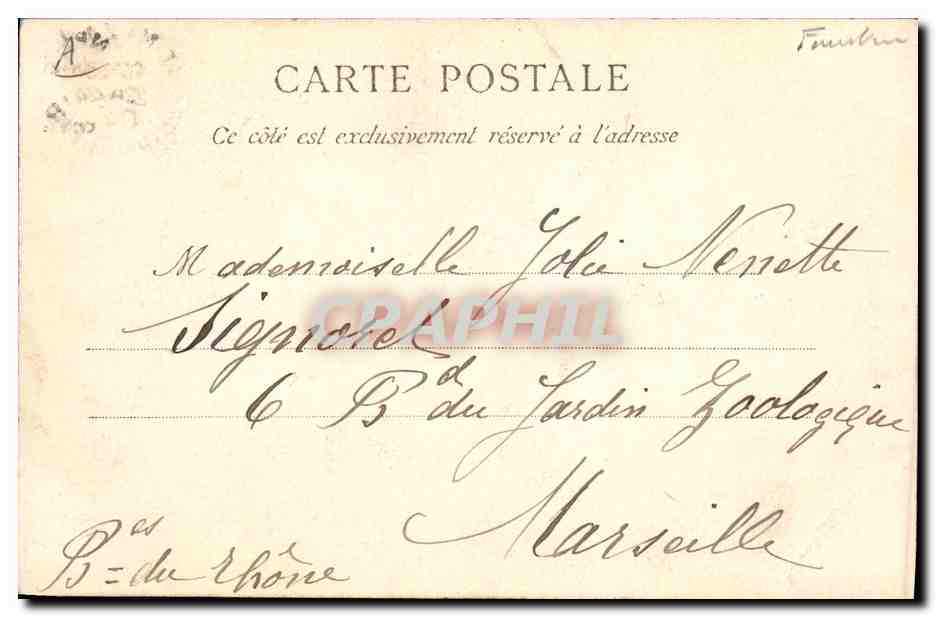 CARTE POSTALE
Ce côté est exclusivement réservé à l'adresse
Mademoiselle Jolie Nenette
Signoret
CRAPHIL
6 Bd du Jardin Zoologique
Marseille
Bes = du Rhône